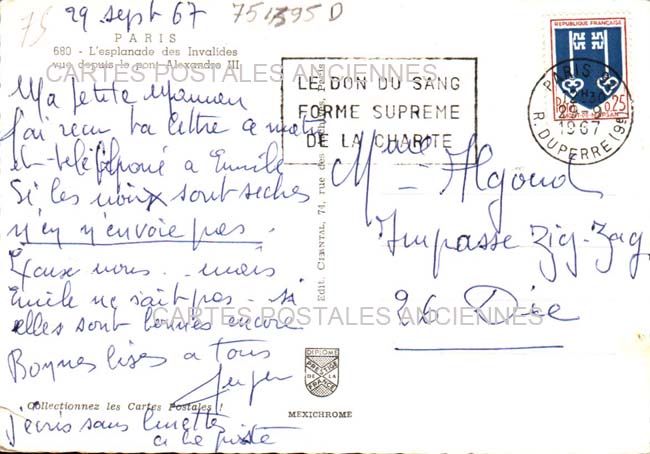 75
29 sept 67
751395 D
PARIS
680 - L'esplanade des Invalides
vue depuis le pont Alexandre III
CARTES POSTALES ANCIENNES
Ma petite Maman
J'ai reçu ta lettre ce matin
et téléphoné a Emile
Si les noix sont seches
n'en n'envoie pas.
mais
Emile ne sait pas si
elles sont bonnes encore
Bonnes bises a tous
Collectionnez les Cartes Postales !
j'écris sans lunettes
a la poste
Edit. CHANTAL, 74, rue des Archives, Paris
LE DON DU SANG
FORME SUPREME
DE LA CHARITE
REPUBLIQUE FRANÇAISE
0,25
MONT-DE-MARSAN
PARIS
29-9
1967
R. DUPERRE (9e)
Mme Algoud
Impasse Zig-Zag
26 Die
CARTES POSTALES ANCIENNES
DIPLOME
PRESTIGE
DE LA
FRANCE
MEXICHROME